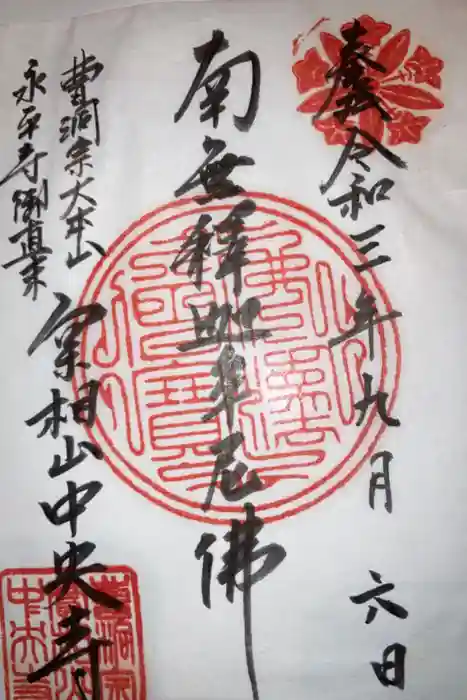 奉拝 令和三年九月六日
南無釋迦牟尼佛
曹洞宗大本山
永平寺御直末
相山中央寺
佛法僧寶